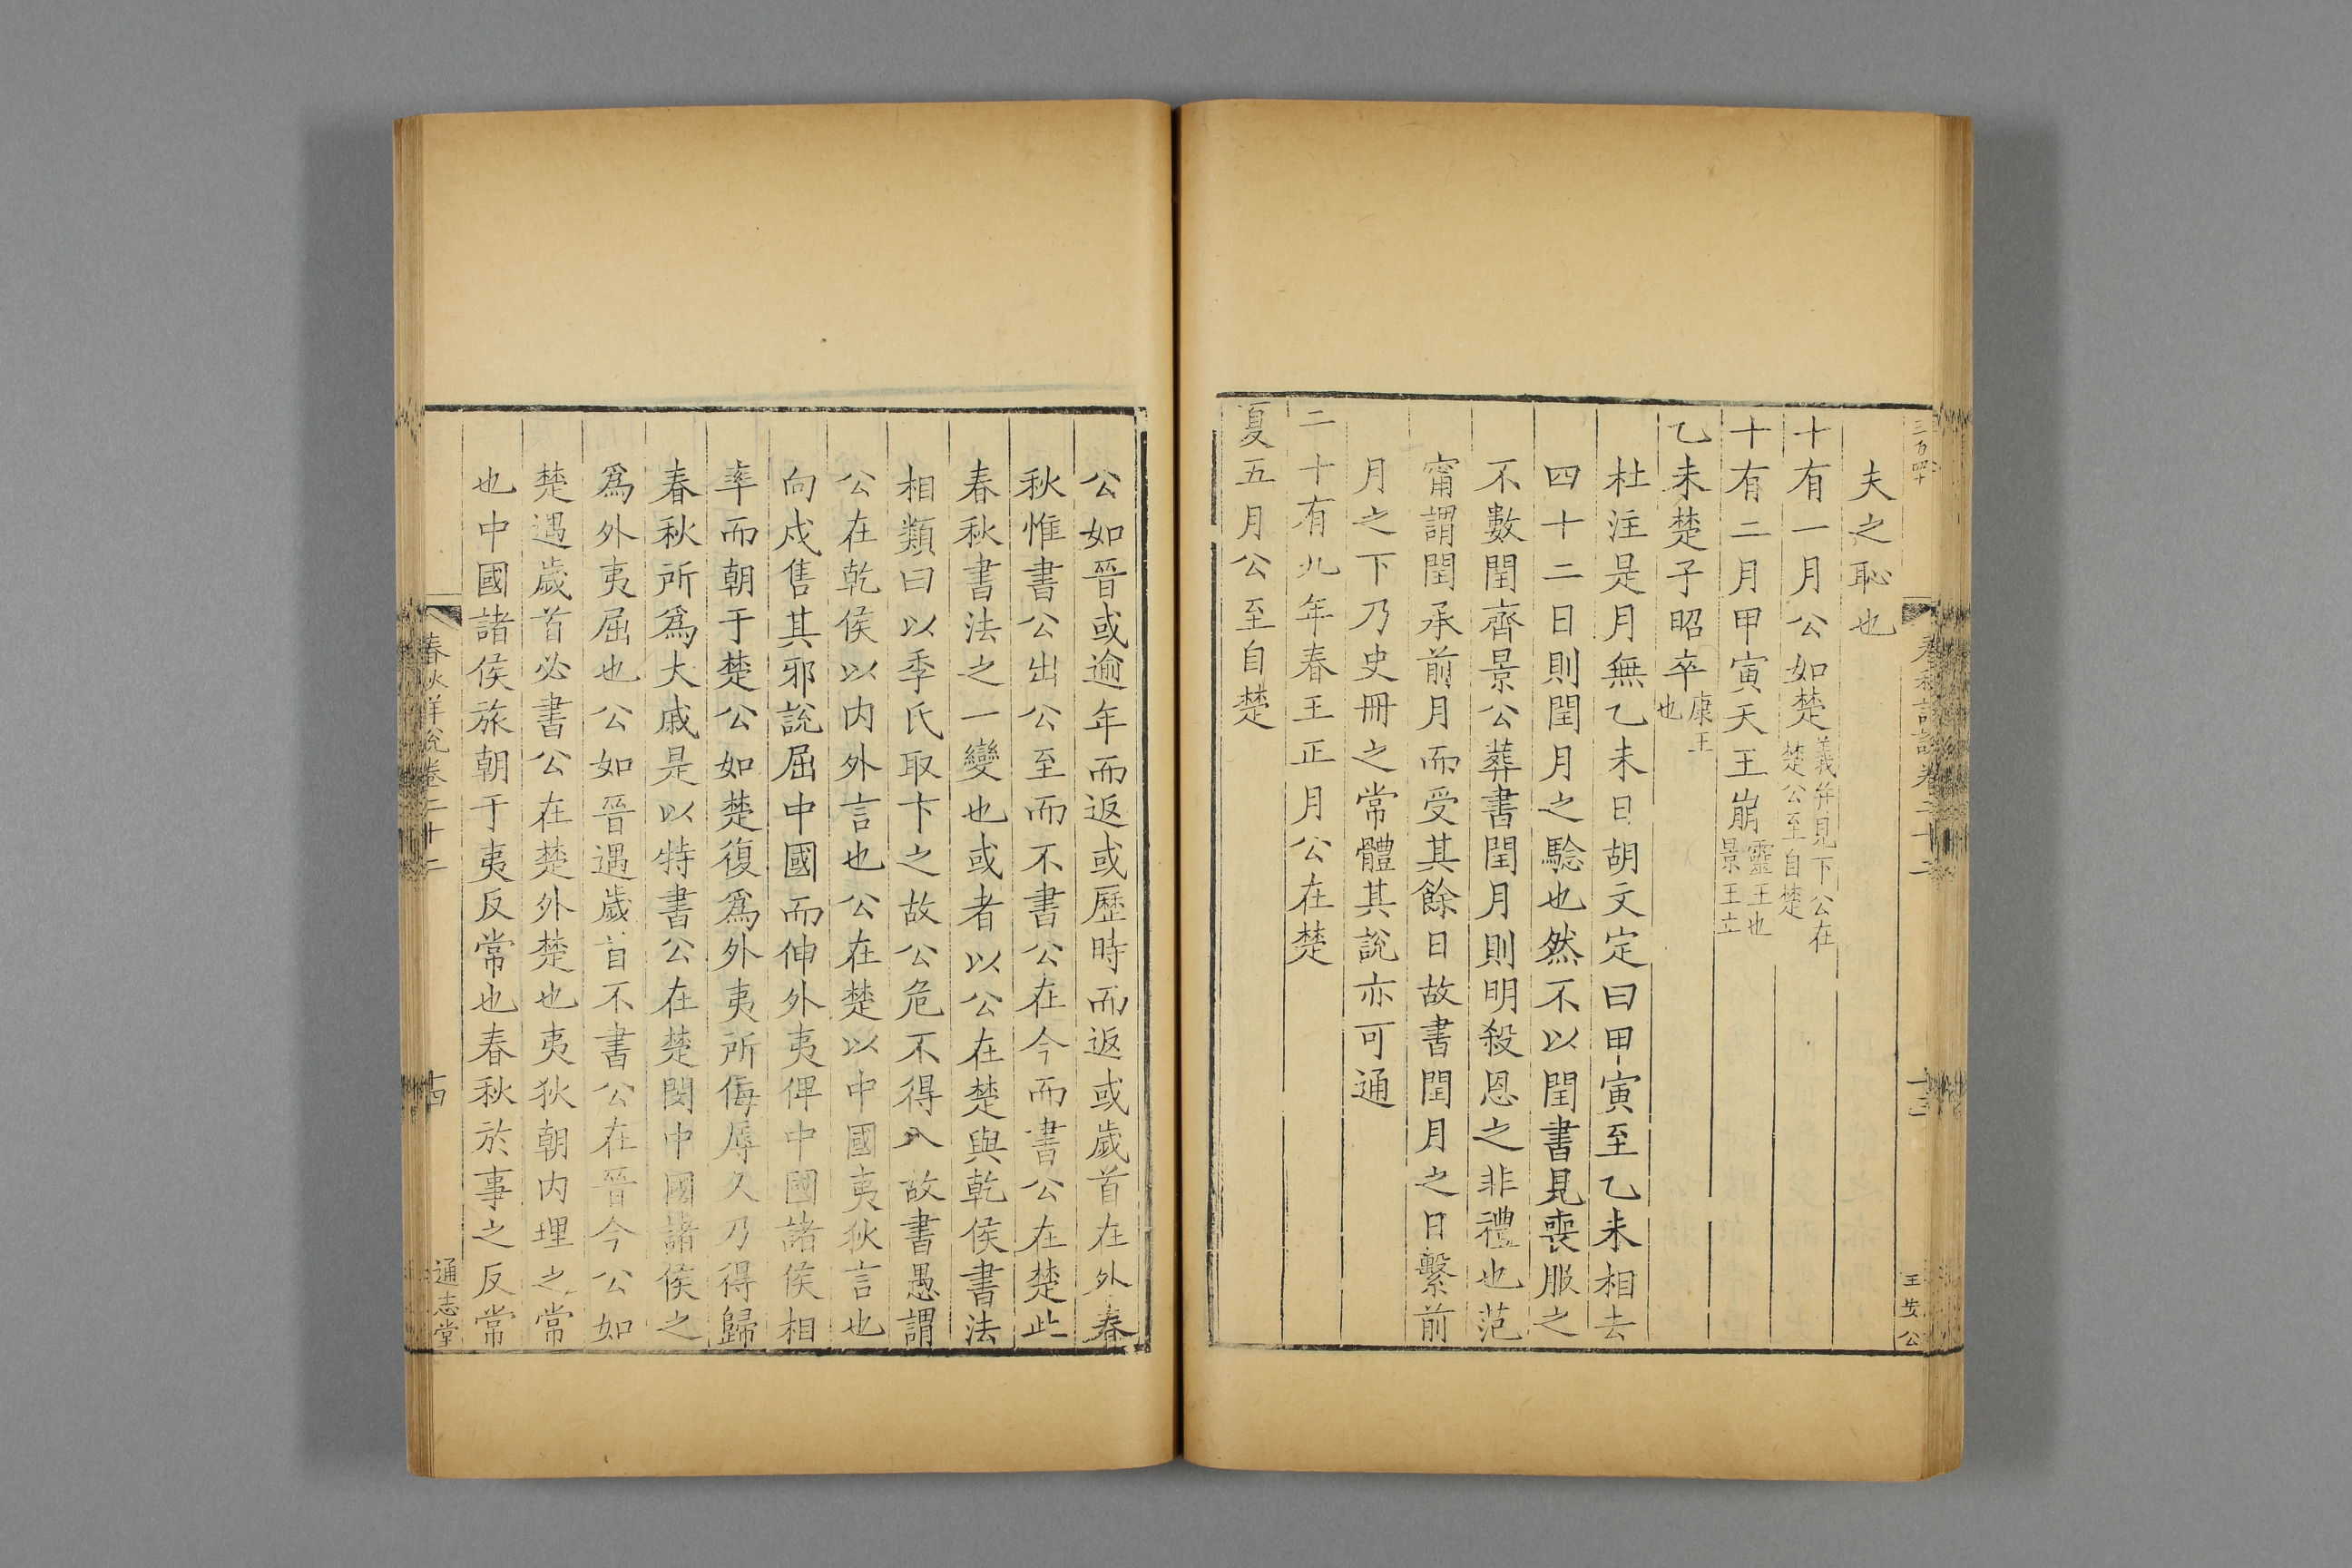 三百四十
春秋詳說卷二十二
十三
王安公
夫之恥也
十有一月公如楚義并見下公在楚公至自楚
十有二月甲寅天王崩靈王也景王立
乙未楚子昭卒康王也
杜注是月無乙未日胡文定曰甲寅至乙未相去
四十二日則閏月之驗也然不以閏書見喪服之
不數閏齊景公葬書閏月則明殺恩之非禮也范
甯謂閏承前月而受其餘日故書閏月之日繫前
月之下乃史冊之常體其說亦可通
二十有九年春王正月公在楚
夏五月公至自楚
公如晉或逾年而返或歷時而返或歲首在外春
秋惟書公出公至而不書公在今而書公在楚此
春秋書法之一變也或者以公在楚與乾侯書法
相類曰以季氏取卞之故公危不得入故書愚謂
公在乾侯以内外言也公在楚以中國夷狄言也
向戍售其邪說屈中國而伸外夷俾中國諸侯相
率而朝于楚公如楚復爲外夷所侮辱久乃得歸
春秋所爲大戚是以特書公在楚閔中國諸侯之
爲外夷屈也公如晉遇歲首不書公在晉今公如
楚遇歲首必書公在楚外楚也夷狄朝内理之常
也中國諸侯旅朝于夷反常也春秋於事之反常
春秋詳說卷二十二
十四
通志堂